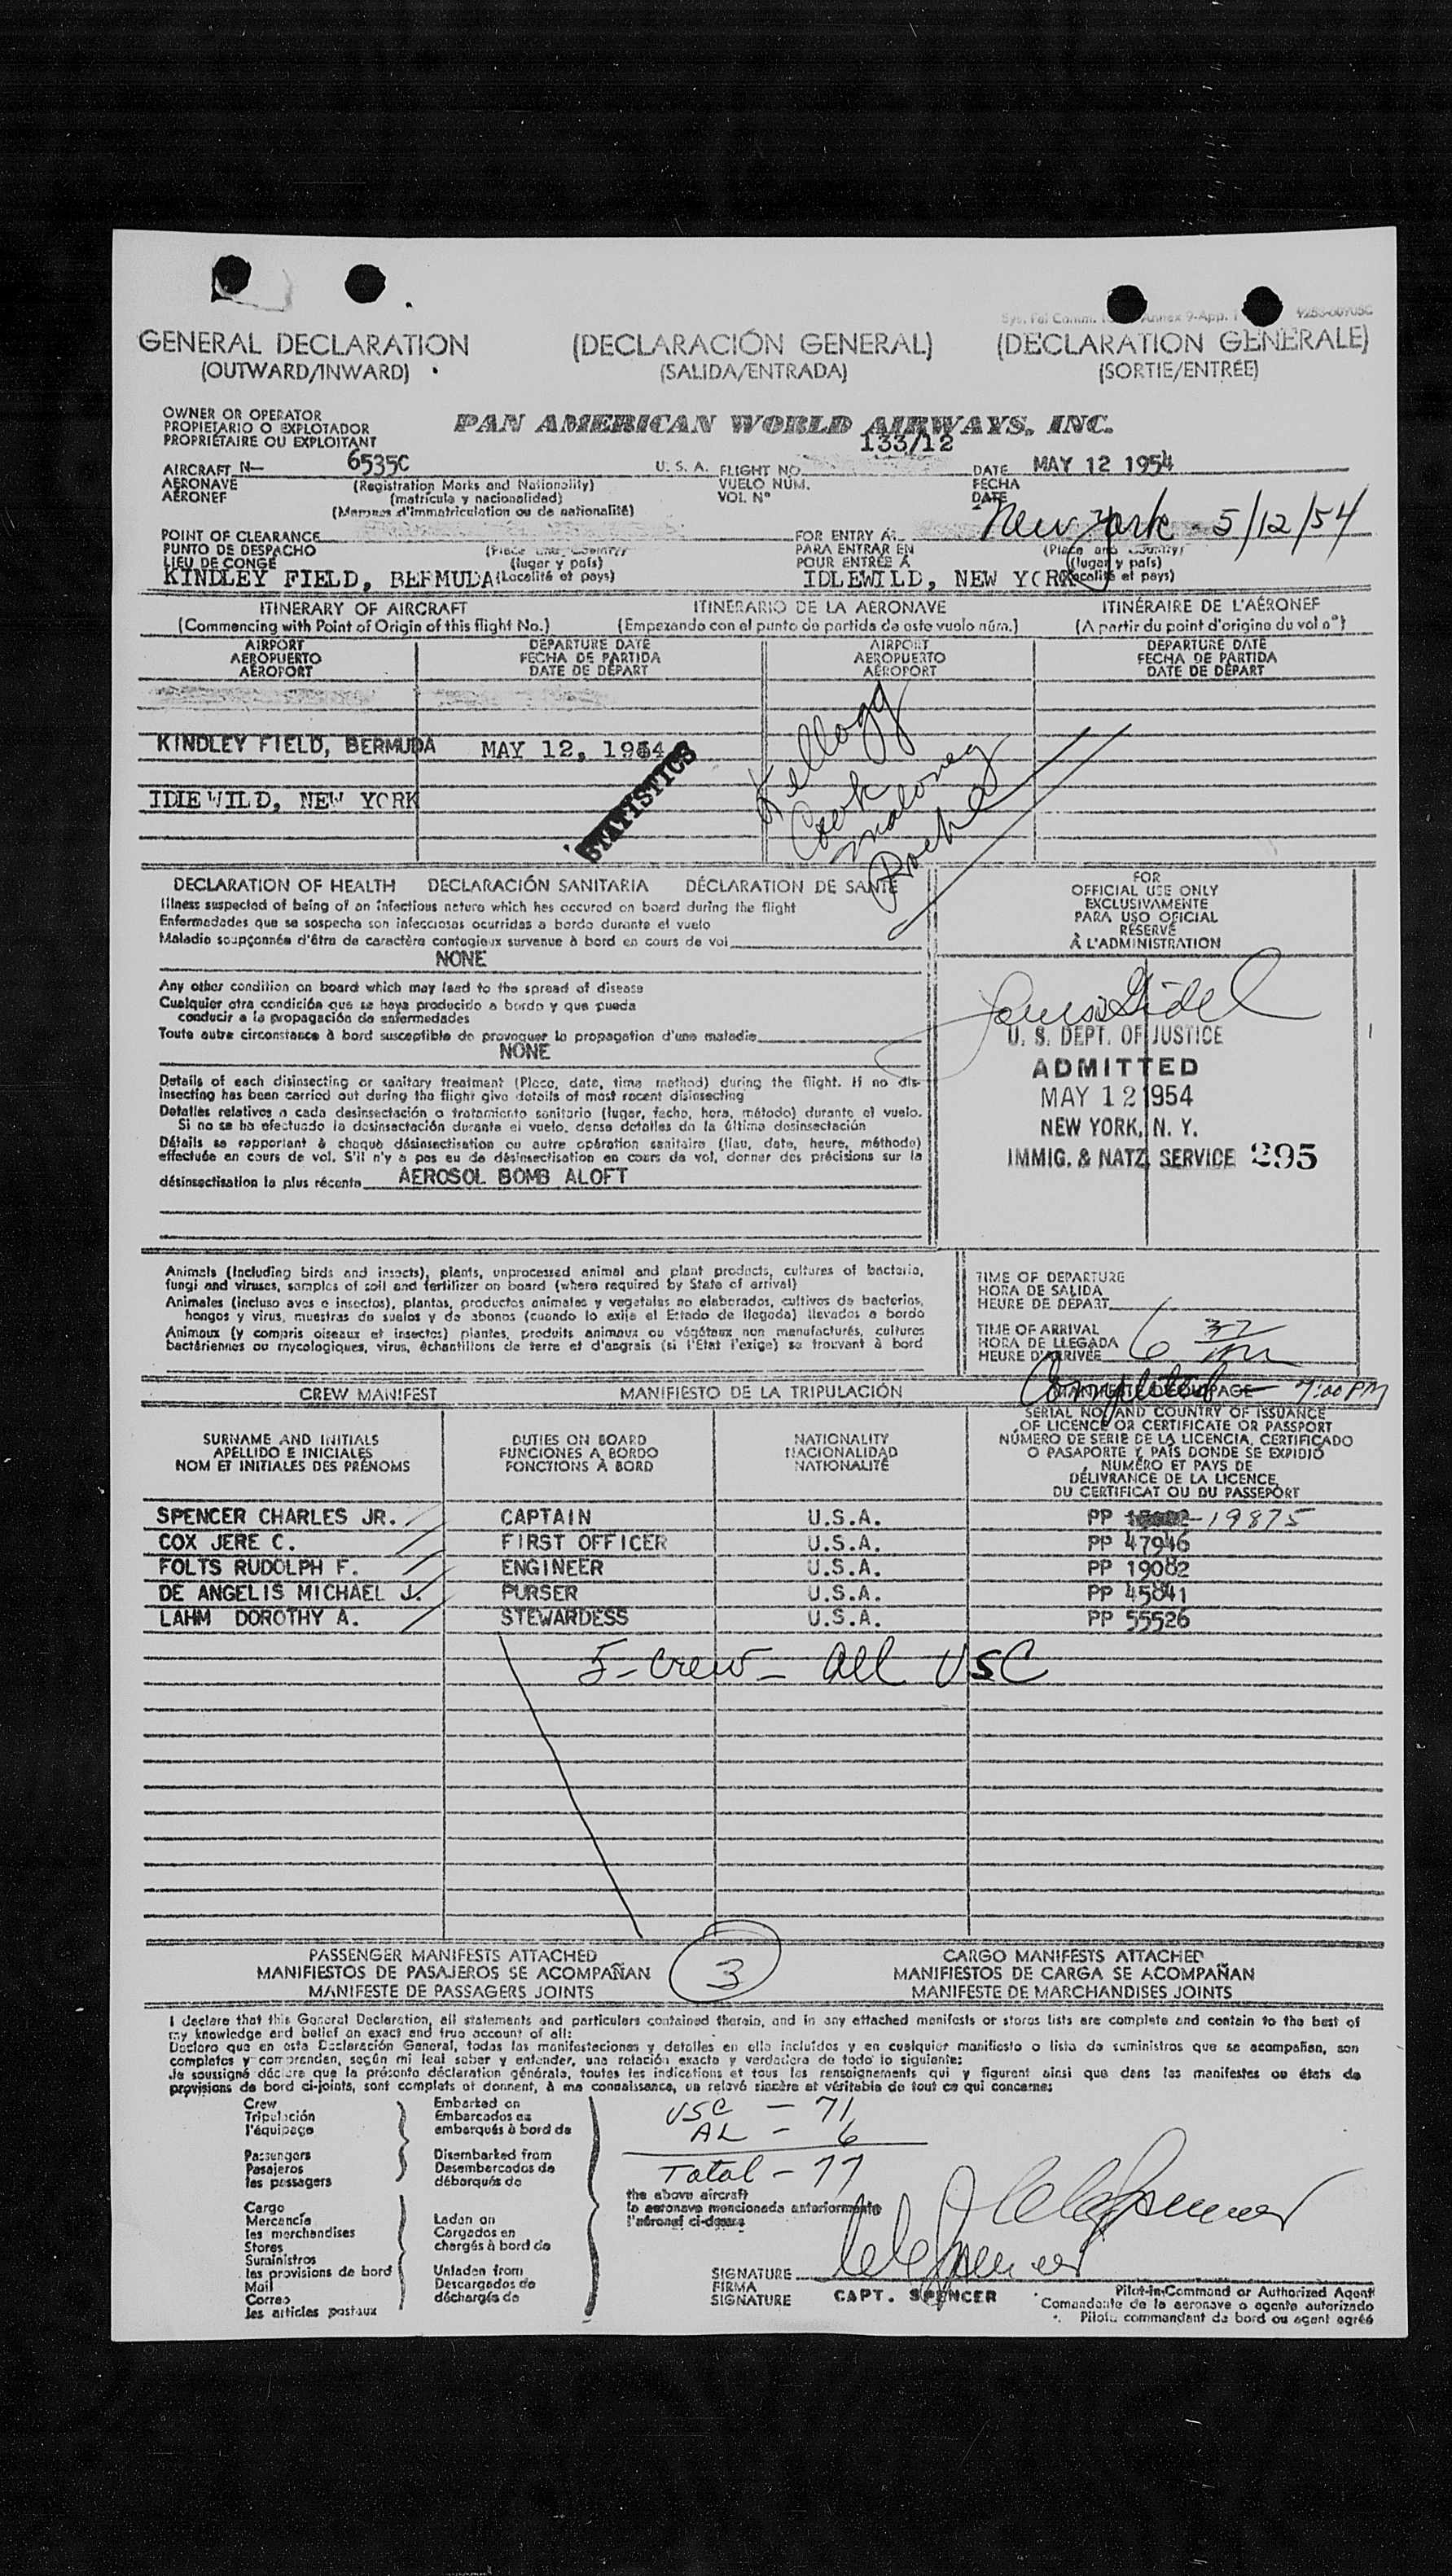 GENERAL DECLARATION (DECLARACIÓN GENERAL) (DECLARATION GÉNÉRALE)
(OUTWARD/INWARD) (SALIDA/ENTRADA) (SORTIE/ENTRÉE)
OWNER OR OPERATOR
PROPIETARIO O EXPLOTADOR
PROPRIÉTAIRE OU EXPLOITANT
PAN AMERICAN WORLD AIRWAYS, INC.
133/12
AIRCRAFT N— 6535C U. S. A. FLIGHT NO. DATE MAY 12 1954
AERONAVE (Registration Marks and Nationality) VUELO NÚM. FECHA
AÉRONEF (matrícula y nacionalidad) VOL Nº DATE
(Marques d'immatriculation ou de nationalité)
New York - 5/12/54
POINT OF CLEARANCE FOR ENTRY AT
PUNTO DE DESPACHO (Place and Country) PARA ENTRAR EN (Place and Country)
LIEU DE CONGÉ (lugar y país) POUR ENTRÉE À (lugar y país)
KINDLEY FIELD, BERMUDA (Localité et pays) IDLEWILD, NEW YORK (Localité et pays)
ITINERARY OF AIRCRAFT ITINERARIO DE LA AERONAVE ITINÉRAIRE DE L'AÉRONEF
(Commencing with Point of Origin of this flight No.) (Empezando con el punto de partida de este vuelo núm.) (A partir du point d'origine du vol nº)
AIRPORT DEPARTURE DATE AIRPORT DEPARTURE DATE
AEROPUERTO FECHA DE PARTIDA AEROPUERTO FECHA DE PARTIDA
AÉROPORT DATE DE DÉPART AÉROPORT DATE DE DÉPART
KINDLEY FIELD, BERMUDA MAY 12, 1954
IDLEWILD, NEW YORK
STATISTICS
Kellogg
Cook
Maloney
Roche
DECLARATION OF HEALTH DECLARACIÓN SANITARIA DÉCLARATION DE SANTÉ
Illness suspected of being of an infectious nature which has occured on board during the flight
Enfermedades que se sospecha son infecciosas ocurridas a bordo durante el vuelo
Maladie soupçonnée d'être de caractère contagieux survenue à bord en cours de vol
NONE
Any other condition on board which may lead to the spread of disease
Cualquier otra condición que se haya producido a bordo y que pueda
conducir a la propagación de enfermedades
Toute autre circonstance à bord susceptible de provoquer la propagation d'une maladie
NONE
Details of each disinsecting or sanitary treatment (Place, date, time method) during the flight. If no dis-
insecting has been carried out during the flight give details of most recent disinsecting
Detalles relativos a cada desinsectación o tratamiento sanitario (lugar, fecha, hora, método) durante el vuelo.
Si no se ha efectuado la desinsectación durante el vuelo, dense detalles de la última desinsectación
Détails se rapportant à chaque désinsectisation ou autre opération sanitaire (lieu, date, heure, méthode)
effectuée en cours de vol. S'il n'y a pas eu de désinsectisation en cours de vol, donner des précisions sur la
désinsectisation la plus récente AEROSOL BOMB ALOFT
FOR
OFFICIAL USE ONLY
EXCLUSIVAMENTE
PARA USO OFICIAL
RÉSERVÉ
À L'ADMINISTRATION
U. S. DEPT. OF JUSTICE
ADMITTED
MAY 12 1954
NEW YORK, N. Y.
IMMIG. & NATZ. SERVICE 295
Animals (Including birds and insects), plants, unprocessed animal and plant products, cultures of bacteria,
fungi and viruses, samples of soil and fertilizer on board (where required by State of arrival)
Animales (incluso aves e insectos), plantas, productos animales y vegetales no elaborados, cultivos de bacterias,
hongos y virus, muestras de suelos y de abonos (cuando lo exija el Estado de llegada) llevados a bordo
Animaux (y compris oiseaux et insectes) plantes, produits animaux ou végétaux non manufacturés, cultures
bactériennes ou mycologiques, virus, échantillons de terre et d'engrais (si l'État l'exige) se trouvant à bord
TIME OF DEPARTURE
HORA DE SALIDA
HEURE DE DÉPART
TIME OF ARRIVAL
HORA DE LLEGADA
HEURE D'ARRIVÉE
Completed - 7:00 PM
CREW MANIFEST MANIFIESTO DE LA TRIPULACIÓN MANIFESTE D'ÉQUIPAGE
SURNAME AND INITIALS DUTIES ON BOARD NATIONALITY SERIAL NO. AND COUNTRY OF ISSUANCE
APELLIDO E INICIALES FUNCIONES A BORDO NACIONALIDAD OF LICENCE OR CERTIFICATE OR PASSPORT
NOM ET INITIALES DES PRÉNOMS FONCTIONS À BORD NATIONALITÉ NÚMERO DE SERIE DE LA LICENCIA, CERTIFICADO
O PASAPORTE Y PAÍS DONDE SE EXPIDIÓ
NUMÉRO ET PAYS DE
DÉLIVRANCE DE LA LICENCE,
DU CERTIFICAT OU DU PASSEPORT
SPENCER CHARLES JR. CAPTAIN U.S.A. PP 19875
COX JERE C. FIRST OFFICER U.S.A. PP 47946
FOLTS RUDOLPH F. ENGINEER U.S.A. PP 19082
DE ANGELIS MICHAEL J. PURSER U.S.A. PP 45841
LAHM DOROTHY A. STEWARDESS U.S.A. PP 55526
5 - Crew - all USC
PASSENGER MANIFESTS ATTACHED 3 CARGO MANIFESTS ATTACHED
MANIFIESTOS DE PASAJEROS SE ACOMPAÑAN MANIFIESTOS DE CARGA SE ACOMPAÑAN
MANIFESTE DE PASSAGERS JOINTS MANIFESTE DE MARCHANDISES JOINTS
I declare that this General Declaration, all statements and particulars contained therein, and in any attached manifests or stores lists are complete and contain to the best of
my knowledge and belief an exact and true account of all:
Declaro que en esta Declaración General, todas las manifestaciones y detalles en ella incluídos y en cualquier manifiesto o lista de suministros que se acompañan, son
completos y comprenden, según mi leal saber y entender, una relación exacta y verdadera de todo lo siguiente:
Je soussigné déclare que la présente déclaration générale, toutes les indications et tous les renseignements qui y figurent ainsi que dans les manifestes ou états de
provisions de bord ci-joints, sont complets et donnent, à ma connaissance, un relevé sincère et véritable de tout ce qui concerne:
Crew Embarked on USC - 71
Tripulación Embarcados en AL - 6
l'équipage embarqués à bord de
Passengers Disembarked from Total - 77
Pasajeros Desembarcados de
les passagers débarqués de
the above aircraft
la aeronave mencionada anteriormente
l'aéronef ci-dessus
Cargo
Mercancía Laden on
les marchandises Cargados en
Stores chargés à bord de
Suministros
les provisions de bord Unladen from
Mail Descargados de
Correo déchargés de
les articles postaux
SIGNATURE
FIRMA
SIGNATURE
CAPT. SPENCER
Pilot-in-Command or Authorized Agent
Comandante de la aeronave o agente autorizado
Pilote commandant de bord ou agent agréé